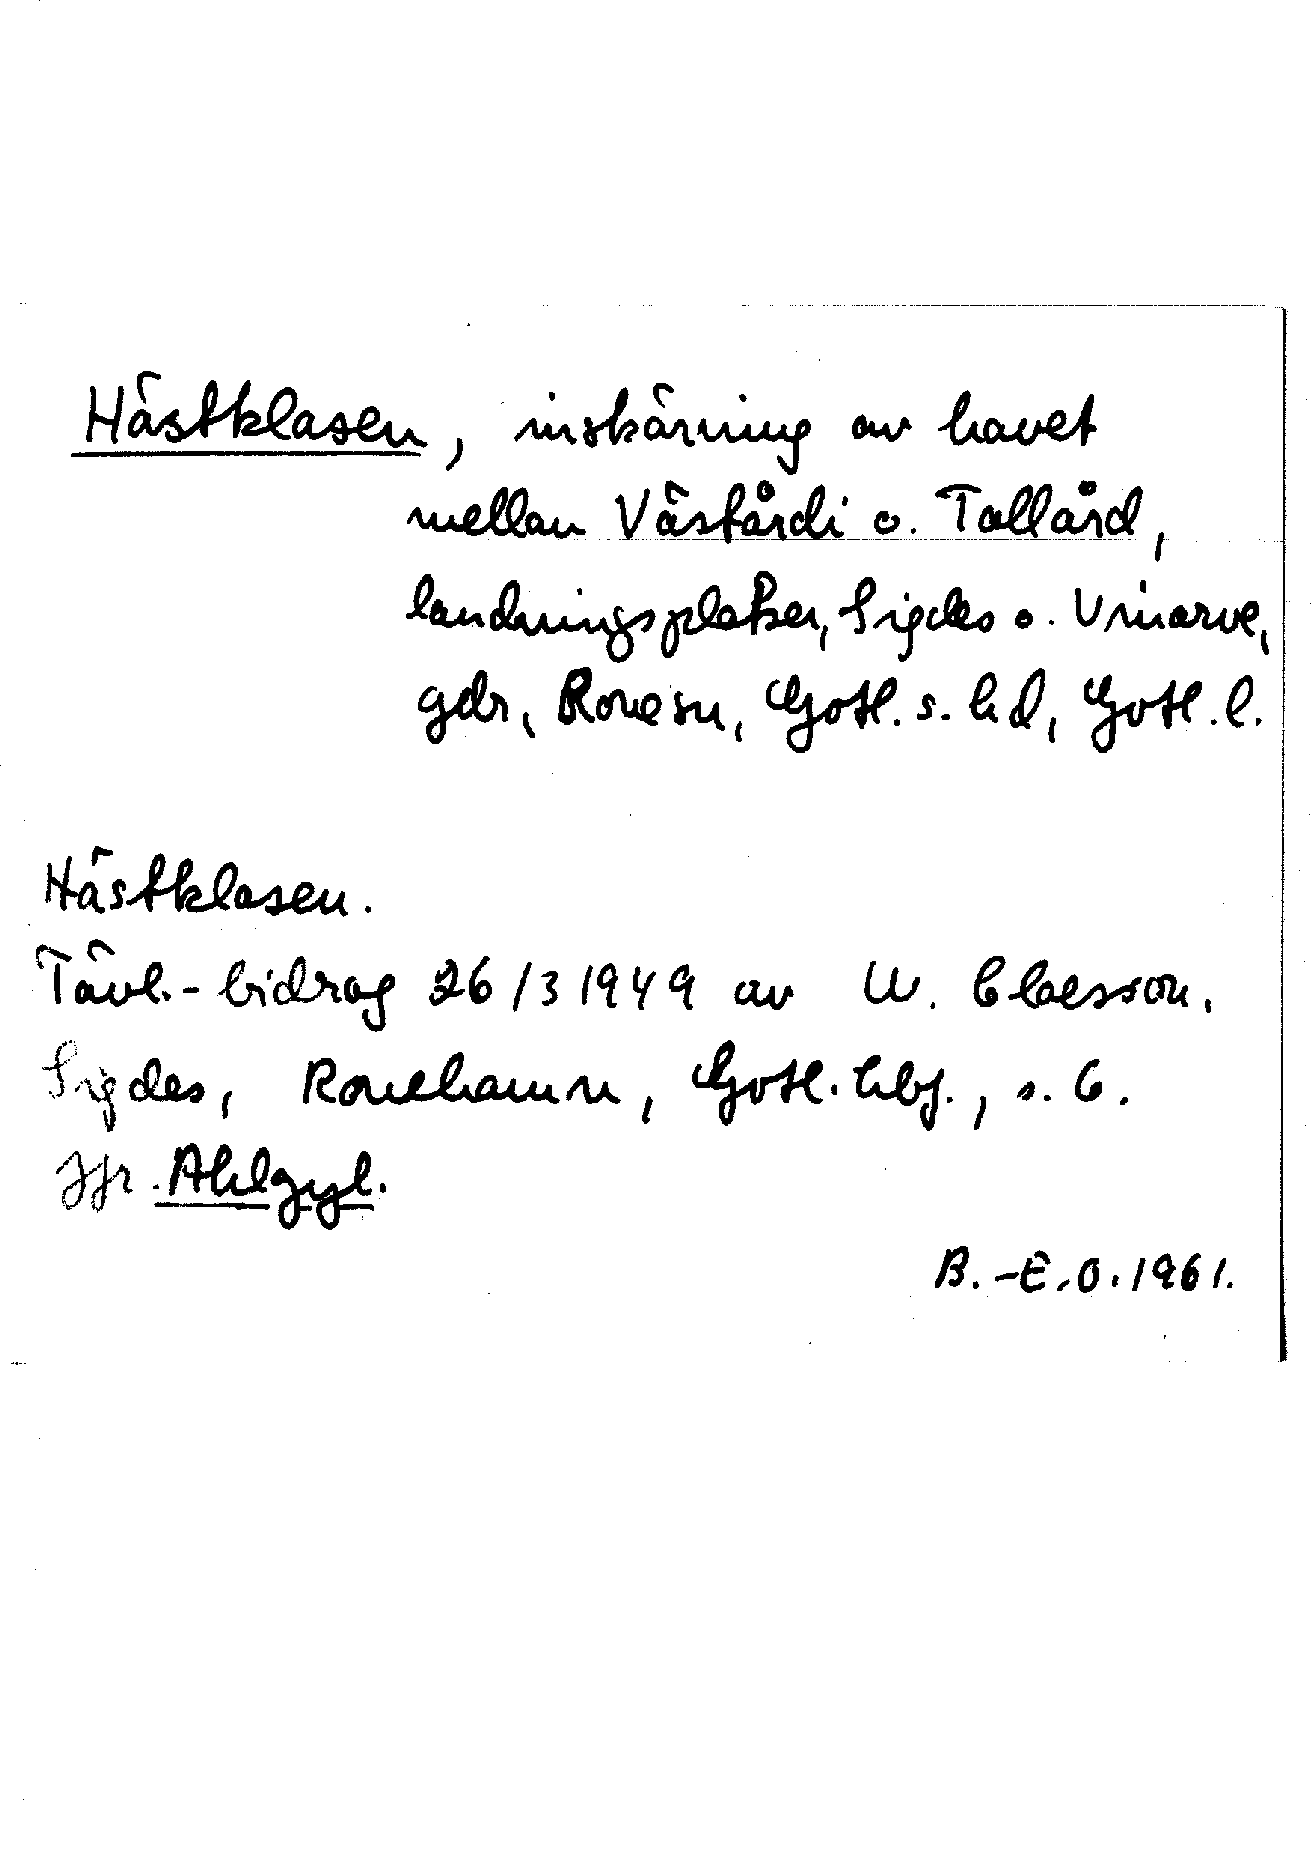 Hästklasen, inskärning av havet
mellan Västårdi o. Tallård,
landningsplatser, Sigdes o. Uniarve,
gdr, Rone sn, Gotl. s. hd, Gotl. l.
Hästklasen.
Tävl.-bidrag 26/3 1949 av W. Claesson,
Sigdes, Ronehamn, Gotl. hbf., s. 6.
Jfr. Ahlgyl.
B.-E.O. 1961.